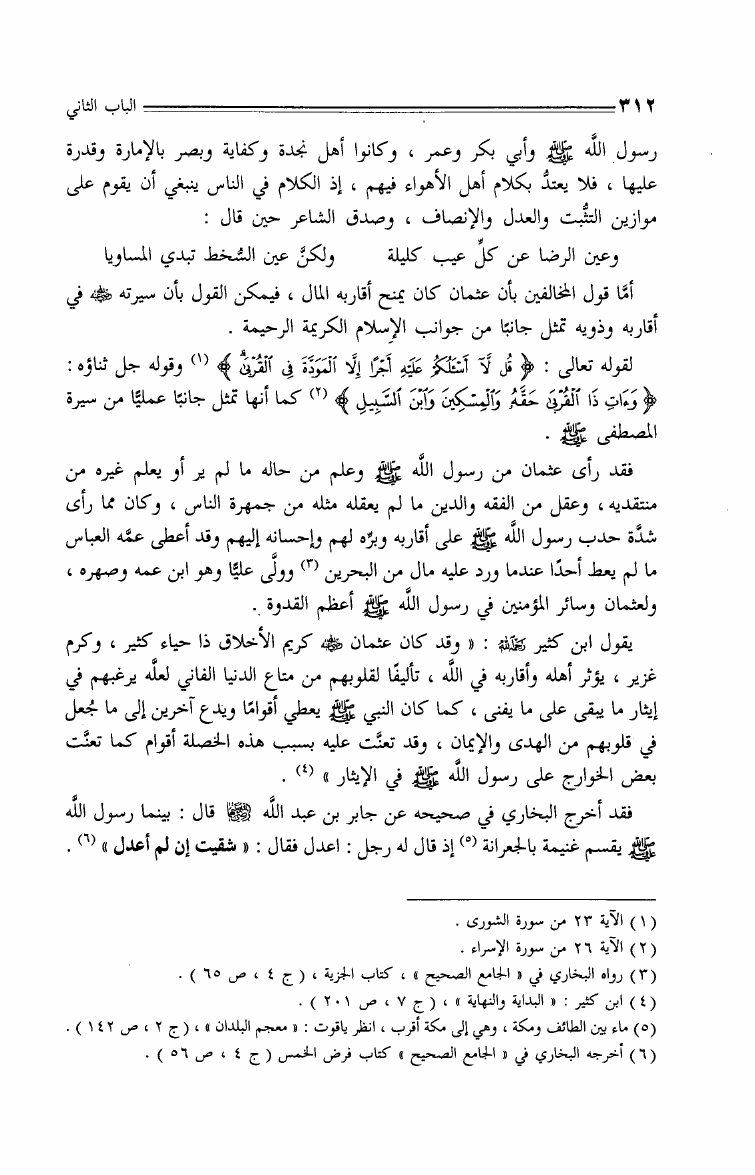 ٣١٢ الباب الثاني
رسول اللَّه ﷺ وأبي بكر وعمر ، وكانوا أهل نجدة وكفاية وبصر بالإمارة وقدرة
عليها ، فلا يعتدُّ بكلام أهل الأهواء فيهم ، إذ الكلام في الناس ينبغي أن يقوم على
موازين التثُّبت والعدل والإنصاف ، وصدق الشاعر حين قال :
وعين الرضا عن كلِّ عيب كليلة ولكنَّ عين السُّخط تبدي المساويا
أمَّا قول المخالفين بأن عثمان كان يمنح أقاربه المال ، فيمكن القول بأن سيرته ﷺ في
أقاربه وذويه تمثل جانبًا من جوانب الإسلام الكريمة الرحيمة .
لقوله تعالى : ﴿ قُل لَّآ أَسْـَٔلُكُمْ عَلَيْهِ أَجْرًا إِلَّا ٱلْمَوَدَّةَ فِى ٱلْقُرْبَىٰ ﴾ (١) وقوله جل ثناؤه :
﴿ وَءَاتِ ذَا ٱلْقُرْبَىٰ حَقَّهُۥ وَٱلْمِسْكِينَ وَٱبْنَ ٱلسَّبِيلِ ﴾ (٢) كما أنها تمثل جانبًا عمليًّا من سيرة
المصطفى ﷺ .
فقد رأى عثمان من رسول اللَّه ﷺ وعلم من حاله ما لم ير أو يعلم غيره من
منتقديه ، وعقل من الفقه والدين ما لم يعقله مثله من جمهرة الناس ، وكان مما رأى
شدَّة حدب رسول اللَّه ﷺ على أقاربه وبرِّه لهم وإحسانه إليهم وقد أعطى عمَّه العباس
ما لم يعط أحدًا عندما ورد عليه مال من البحرين (٣) وولَّى عليًّا وهو ابن عمه وصهره ،
ولعثمان وسائر المؤمنين في رسول اللَّه ﷺ أعظم القدوة .
يقول ابن كثير رحمه الله : « وقد كان عثمان رضي الله عنه كريم الأخلاق ذا حياء كثير ، وكرم
غزير ، يؤثر أهله وأقاربه في اللَّه ، تأليفًا لقلوبهم من متاع الدنيا الفاني لعلَّه يرغبهم في
إيثار ما يبقى على ما يفنى ، كما كان النبي ﷺ يعطي أقوامًا ويدع آخرين إلى ما جُعل
في قلوبهم من الهدى والإيمان ، وقد تعنَّت عليه بسبب هذه الخصلة أقوام كما تعنَّت
بعض الخوارج على رسول اللَّه ﷺ في الإيثار » (٤) .
فقد أخرج البخاري في صحيحه عن جابر بن عبد اللَّه رضي الله عنهما قال : بينما رسول اللَّه
ﷺ يقسم غنيمة بالجعرانة (٥) إذ قال له رجل : اعدل فقال : « شقيت إن لم أعدل » (٦) .
(١) الآية ٢٣ من سورة الشورى .
(٢) الآية ٢٦ من سورة الإسراء .
(٣) رواه البخاري في « الجامع الصحيح » ، كتاب الجزية ، ( ج ٤ ، ص ٦٥ ) .
(٤) ابن كثير : « البداية والنهاية » ، ( ج ٧ ، ص ٢٠١ ) .
(٥) ماء بين الطائف ومكة ، وهي إلى مكة أقرب ، انظر ياقوت : « معجم البلدان » ، ( ج ٢ ، ص ١٤٢ ) .
(٦) أخرجه البخاري في « الجامع الصحيح » كتاب فرض الخمس ( ج ٤ ، ص ٥٦ ) .